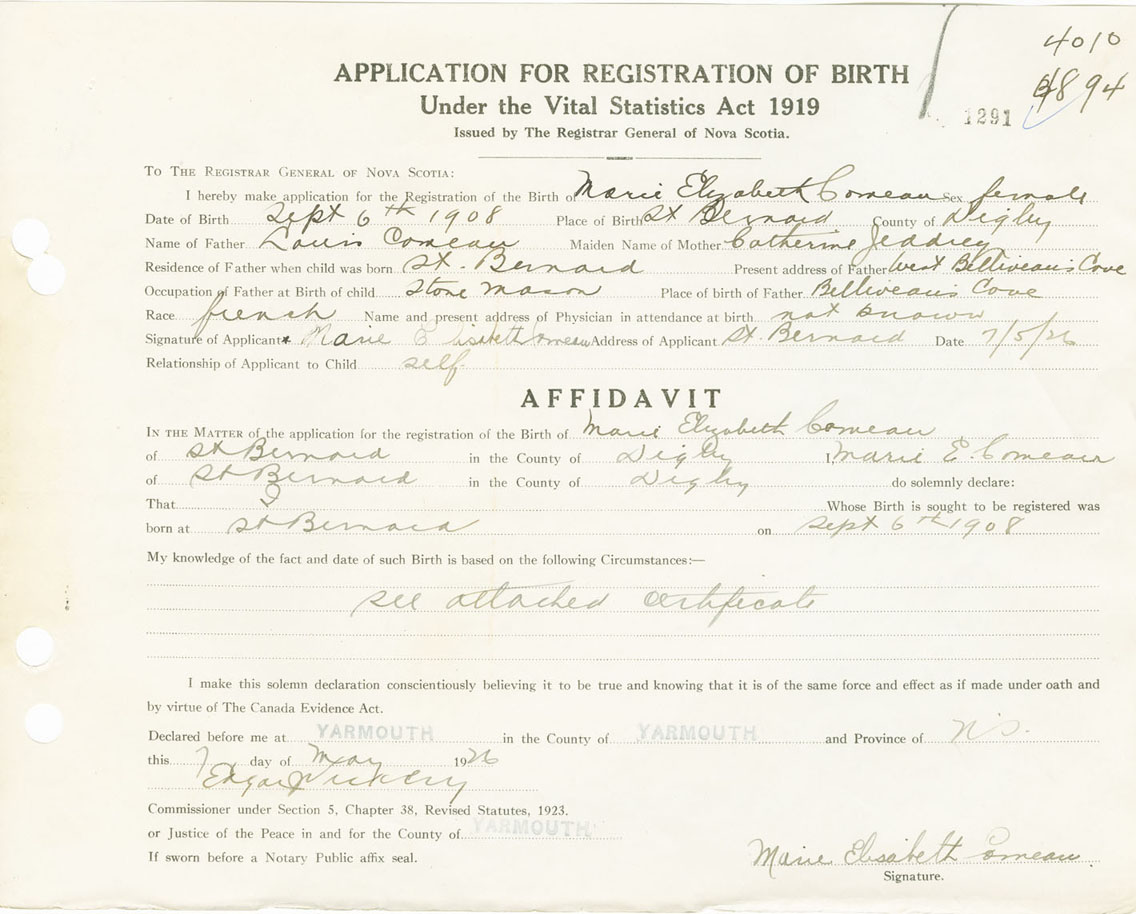 4010
4894
1291
APPLICATION FOR REGISTRATION OF BIRTH
Under the Vital Statistics Act 1919
Issued by The Registrar General of Nova Scotia.
To The Registrar General of Nova Scotia:
I hereby make application for the Registration of the Birth of Marie Elizabeth Comeau Sex female
Date of Birth Sept 6th 1908 Place of Birth St Bernard County of Digby
Name of Father Louis Comeau Maiden Name of Mother Catherine Jeddrey
Residence of Father when child was born St. Bernard Present address of Father West Belliveau's Cove
Occupation of Father at Birth of child Stone Mason Place of birth of Father Belliveau's Cove
Race french Name and present address of Physician in attendance at birth not known
Signature of Applicant Marie Elisabeth Comeau Address of Applicant St. Bernard Date 7/5/26
Relationship of Applicant to Child self
AFFIDAVIT
In the Matter of the application for the registration of the Birth of Marie Elizabeth Comeau
of St Bernard in the County of Digby I, Marie E Comeau
of St Bernard in the County of Digby do solemnly declare:
That I Whose Birth is sought to be registered was
born at St Bernard on Sept 6th 1908
My knowledge of the fact and date of such Birth is based on the following Circumstances:—
see attached certificate
I make this solemn declaration conscientiously believing it to be true and knowing that it is of the same force and effect as if made under oath and
by virtue of The Canada Evidence Act.
Declared before me at YARMOUTH in the County of YARMOUTH and Province of N.S.
this 7 day of May 1926
Edgar
Commissioner under Section 5, Chapter 38, Revised Statutes, 1923.
or Justice of the Peace in and for the County of YARMOUTH
If sworn before a Notary Public affix seal.
Marie Elisabeth Comeau
Signature.